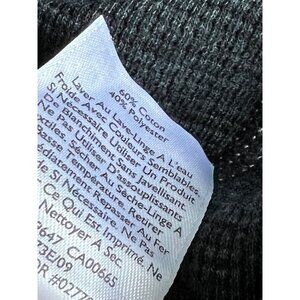 60% Coton
40% Polyester
Laver Au Lave-Linge À L'eau
Froide Avec Couleurs Semblables.
Si Nécessaire Utiliser Un Produit
De Blanchiment Sans Javellisant.
Ne Pas Utiliser D'assouplissants
Textiles Sécher Au Sèche-Linge A
Basse Température Et Retirer
Immédiatement Repasser Au Fer
Tiède Si Nécessaire.
Ne Pas Repasser
Ce Qui Est Imprimé. Ne
Nettoyer A Sec.
3647 CA00665
73E/09